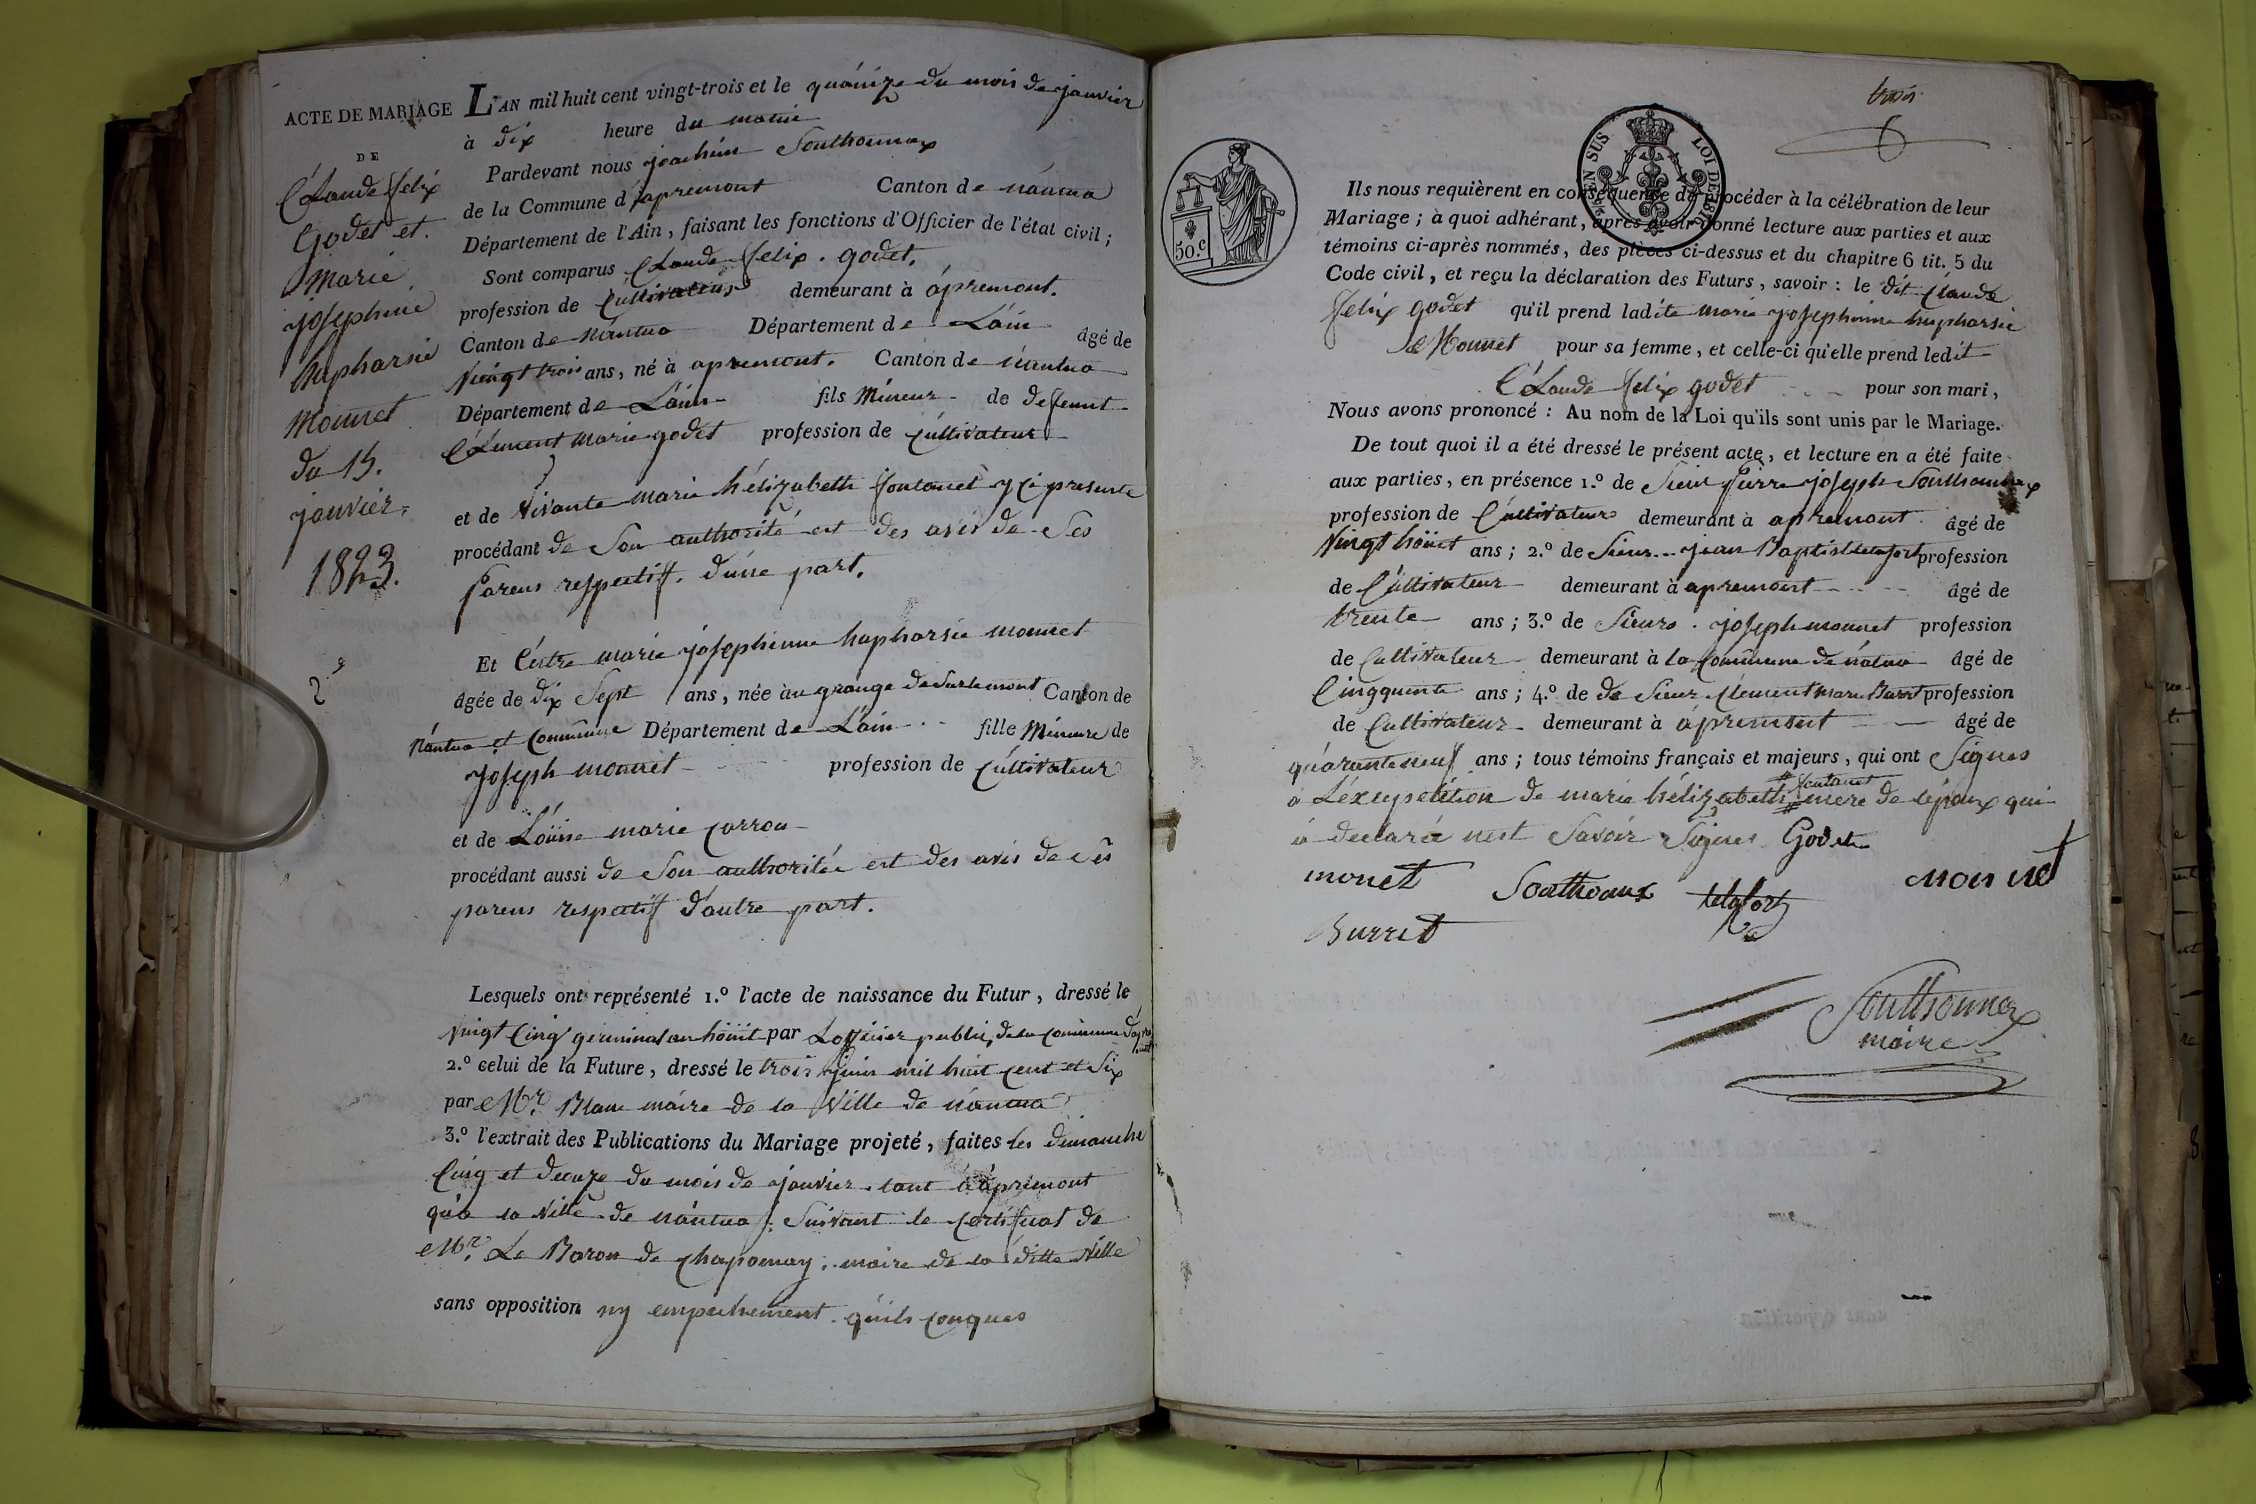 ACTE DE MARIAGE
DE
Claude felix
Godet et
marie
josephine
hupharsie
Monnet
du 15.
janvier
1823.
2e
L'AN mil huit cent vingt-trois et le quainze du mois de janvier
à dix heure du matin
Pardevant nous joachim Southonnax
de la Commune d'apremont Canton de nantua
Département de l'Ain, faisant les fonctions d'Officier de l'état civil;
Sont comparus Claude felix godet,
profession de Cultivateur demeurant à apremont.
Canton de Nantua Département de Lain âgé de
Vingt trois ans, né à apremont. Canton de nantua
Département de Lain fils Mineur de deffeunt
Clément marie godet profession de Cultivateur
et de vivante marie hélizabeth fontanet y ci presente
procédant de Son authorité est des avis de Ses
parens respectiff. dune part.
Et Cestre marie josephinne hapharsie monnet
âgée de dix Sept ans, née àu grange de Surlemont Canton de
Nantua et Commune Département de Lain fille Mineure de
joseph monnet profession de Cultivateur
et de Louise marie Carron
procédant aussi de Son authoritée est des avis de Ses
parens respectiff d'autre part.
Lesquels ont représenté 1.º l'acte de naissance du Futur, dressé le
vingt Cinq germinal an hôuit par Lofficier public, de la commune d'apremont
2.º celui de la Future, dressé le trois juin mil huit cent et Six
par Mr. Blanc maire de la Ville de nantua
3.º l'extrait des Publications du Mariage projeté, faites les dimanche
Cinq et douze du mois de janvier tant a apremont
qu'a la Ville de nantua; Suivant le Certificat de
Mr. Le Baron de Chaponay, maire de la ditte ville
sans opposition ny empechement quils conques
trois
EN SUS
LOI DE 1816
50.c
Ils nous requièrent en conséquence de procéder à la célébration de leur
Mariage; à quoi adhérant, après avoir donné lecture aux parties et aux
témoins ci-après nommés, des pièces ci-dessus et du chapitre 6 tit. 5 du
Code civil, et reçu la déclaration des Futurs, savoir: le dit Claude
felix godet qu'il prend ladite marie josephinne hupharsie
Monnet pour sa femme, et celle-ci qu'elle prend ledit
Claude felix godet pour son mari,
Nous avons prononcé: Au nom de la Loi qu'ils sont unis par le Mariage.
De tout quoi il a été dressé le présent acte, et lecture en a été faite
aux parties, en présence 1.º de Sieur Pierre joseph Southonnax
profession de Cultivateur demeurant à apremont âgé de
Vingt hôuit ans; 2.º de Sieur jean Baptist delafort profession
de Cultivateur demeurant à apremont âgé de
trente ans; 3.º de Sieur joseph monnet profession
de Cultivateur demeurant à la Commune de natua âgé de
Cinqquente ans; 4.º de de Sieur Clement marie Burret profession
de Cultivateur demeurant à apremont âgé de
quarante neuf ans; tous témoins français et majeurs, qui ont Signes
a Lexcepetition de marie hélizabeth fontanet mere de lépoux qui
a declarée nest Savoir Signes Godet
monet Southonax delafort monnet
Burret
Southonnax
maire